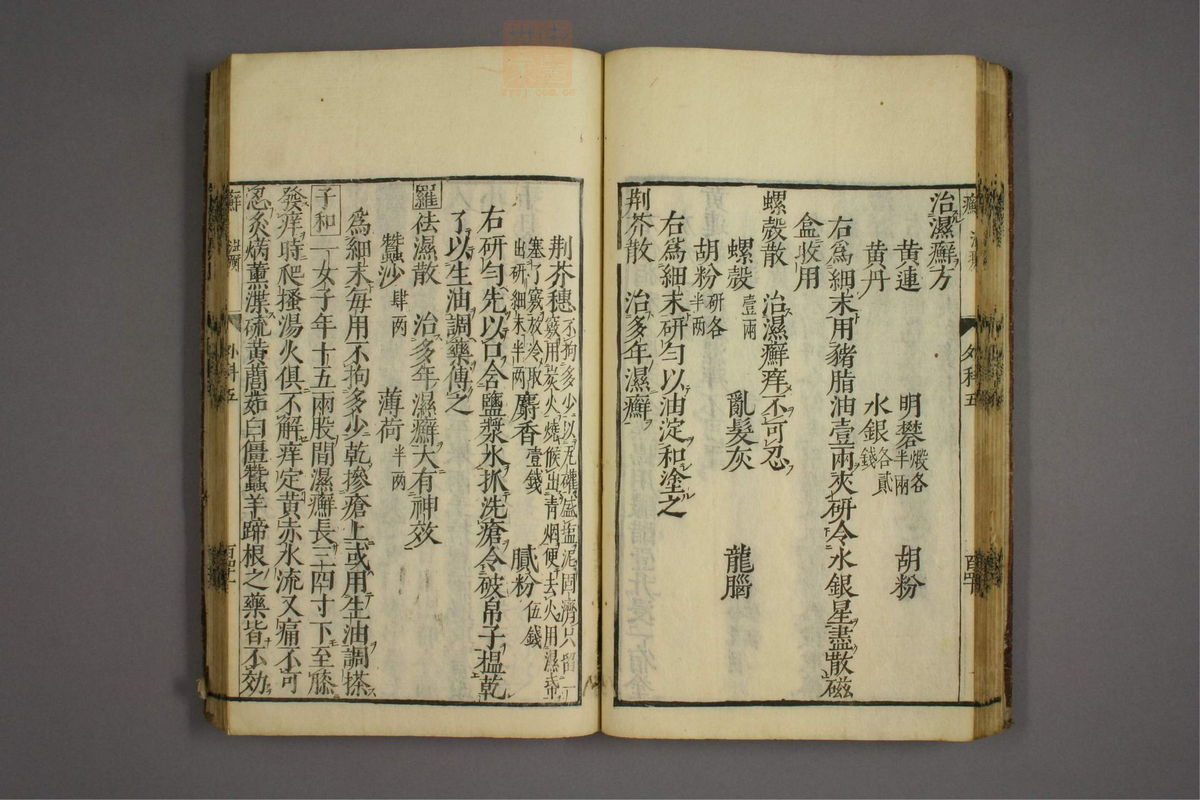 治濕癬方
黄連 明礬煅各半兩 胡粉
黄丹 水銀各貳錢
右爲細末用豬脂油壹兩夾研令水銀星盡散磁
盒收用
螺殻散 治濕癬痒不可忍
螺殻壹兩 亂髮灰 龍腦
胡粉研各半兩
右爲細末研勻以油淀和塗之
荆芥散 治多年濕癬
外科五
荆芥穗不拘多少以瓦礶盛鹽泥固濟只留一丁
竅用炭火燒候出青烟便去火用濕紙
塞了竅放冷取出研細末半兩 麝香壹錢 膩粉伍錢
右研勻先以口含鹽漿水抓洗瘡令破帛子搵乾
了以生油調藥傅之
羅 祛濕散 治多年濕癬大有神效
蠶沙肆两 薄荷半两
爲細末每用不拘多少乾摻瘡上或用生油調搽
子和 一女子年十五兩股間濕癬長三四寸下至膝
發痒時爬搔湯火俱不解痒定黄赤水流又痛不可
忍灸焫薰渫硫黄䕡茹白僵蠶羊蹄根之藥皆不効
癬
外科五